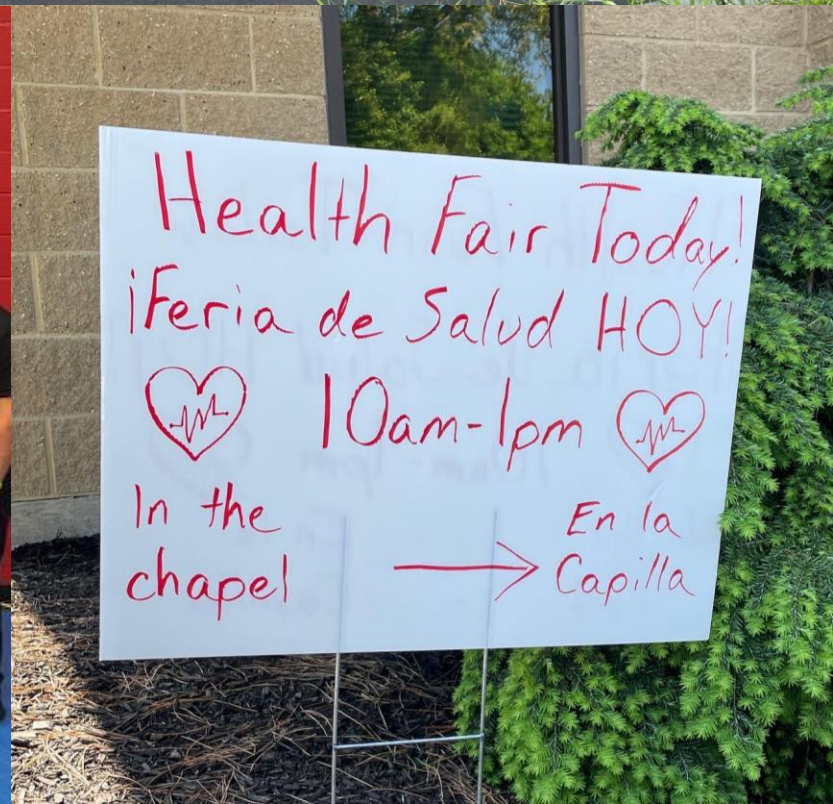 Health Fair Today!
¡Feria de Salud HOY!
10am-1pm
In the
chapel
En la
Capilla